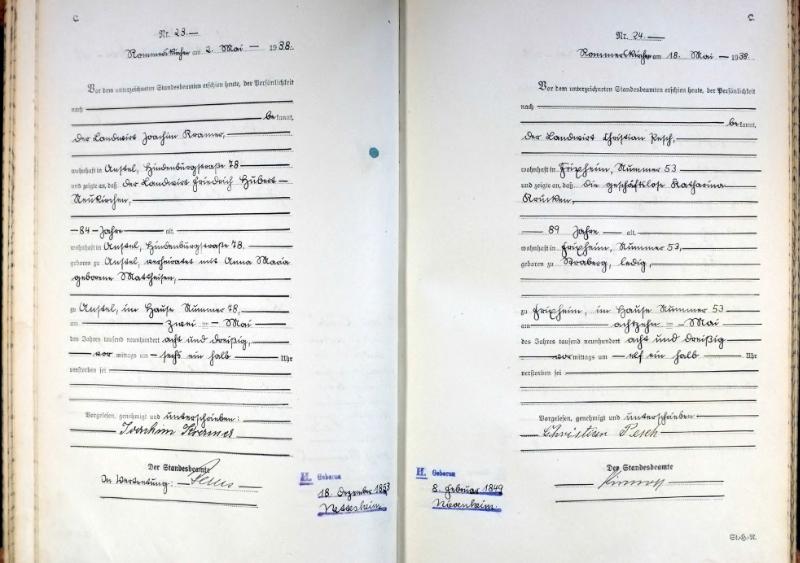 C
Nr. 23.
Rommerskirchen am 2. Mai 1938.
Vor dem unterzeichneten Standesbeamten erschien heute, der Persönlichkeit
nach
bekannt,
der Landwirt Joachim Kramer,
wohnhaft in Anstel, Hindenburgstraße 78
und zeigte an, daß der Landwirt Friedrich Hubert
Neukirchen,
84 Jahre alt,
wohnhaft in Anstel, Hindenburgstraße 78.
geboren zu Anstel, verheiratet mit Anna Maria
geborene Mattheisen,
zu Anstel, im Hause Nummer 78,
am zwei Mai
des Jahres tausend neunhundert acht und dreißig
vor mittags um sechs ein halb Uhr
verstorben sei
Vorgelesen, genehmigt und unterschrieben:
Joachim Kramer
Der Standesbeamte
In Vertretung:
H. Geboren
18. Dezember 1853
Nettesheim
C.
Nr. 24.
Rommerskirchen am 18. Mai 1938.
Vor dem unterzeichneten Standesbeamten erschien heute, der Persönlichkeit
nach
bekannt,
der Landwirt Christian Pesch,
wohnhaft in Frixheim, Nummer 53
und zeigte an, daß die geschäftslose Katharina
Krücken,
89 Jahre alt,
wohnhaft in Frixheim, Nummer 53,
geboren zu Straberg, ledig,
zu Frixheim, im Hause Nummer 53
am achtzehn Mai
des Jahres tausend neunhundert acht und dreißig
vor mittags um elf ein halb Uhr
verstorben sei
Vorgelesen, genehmigt und unterschrieben
Christian Pesch
Der Standesbeamte
H. Geboren
8. Februar 1849
Nievenheim.
St.H.N.